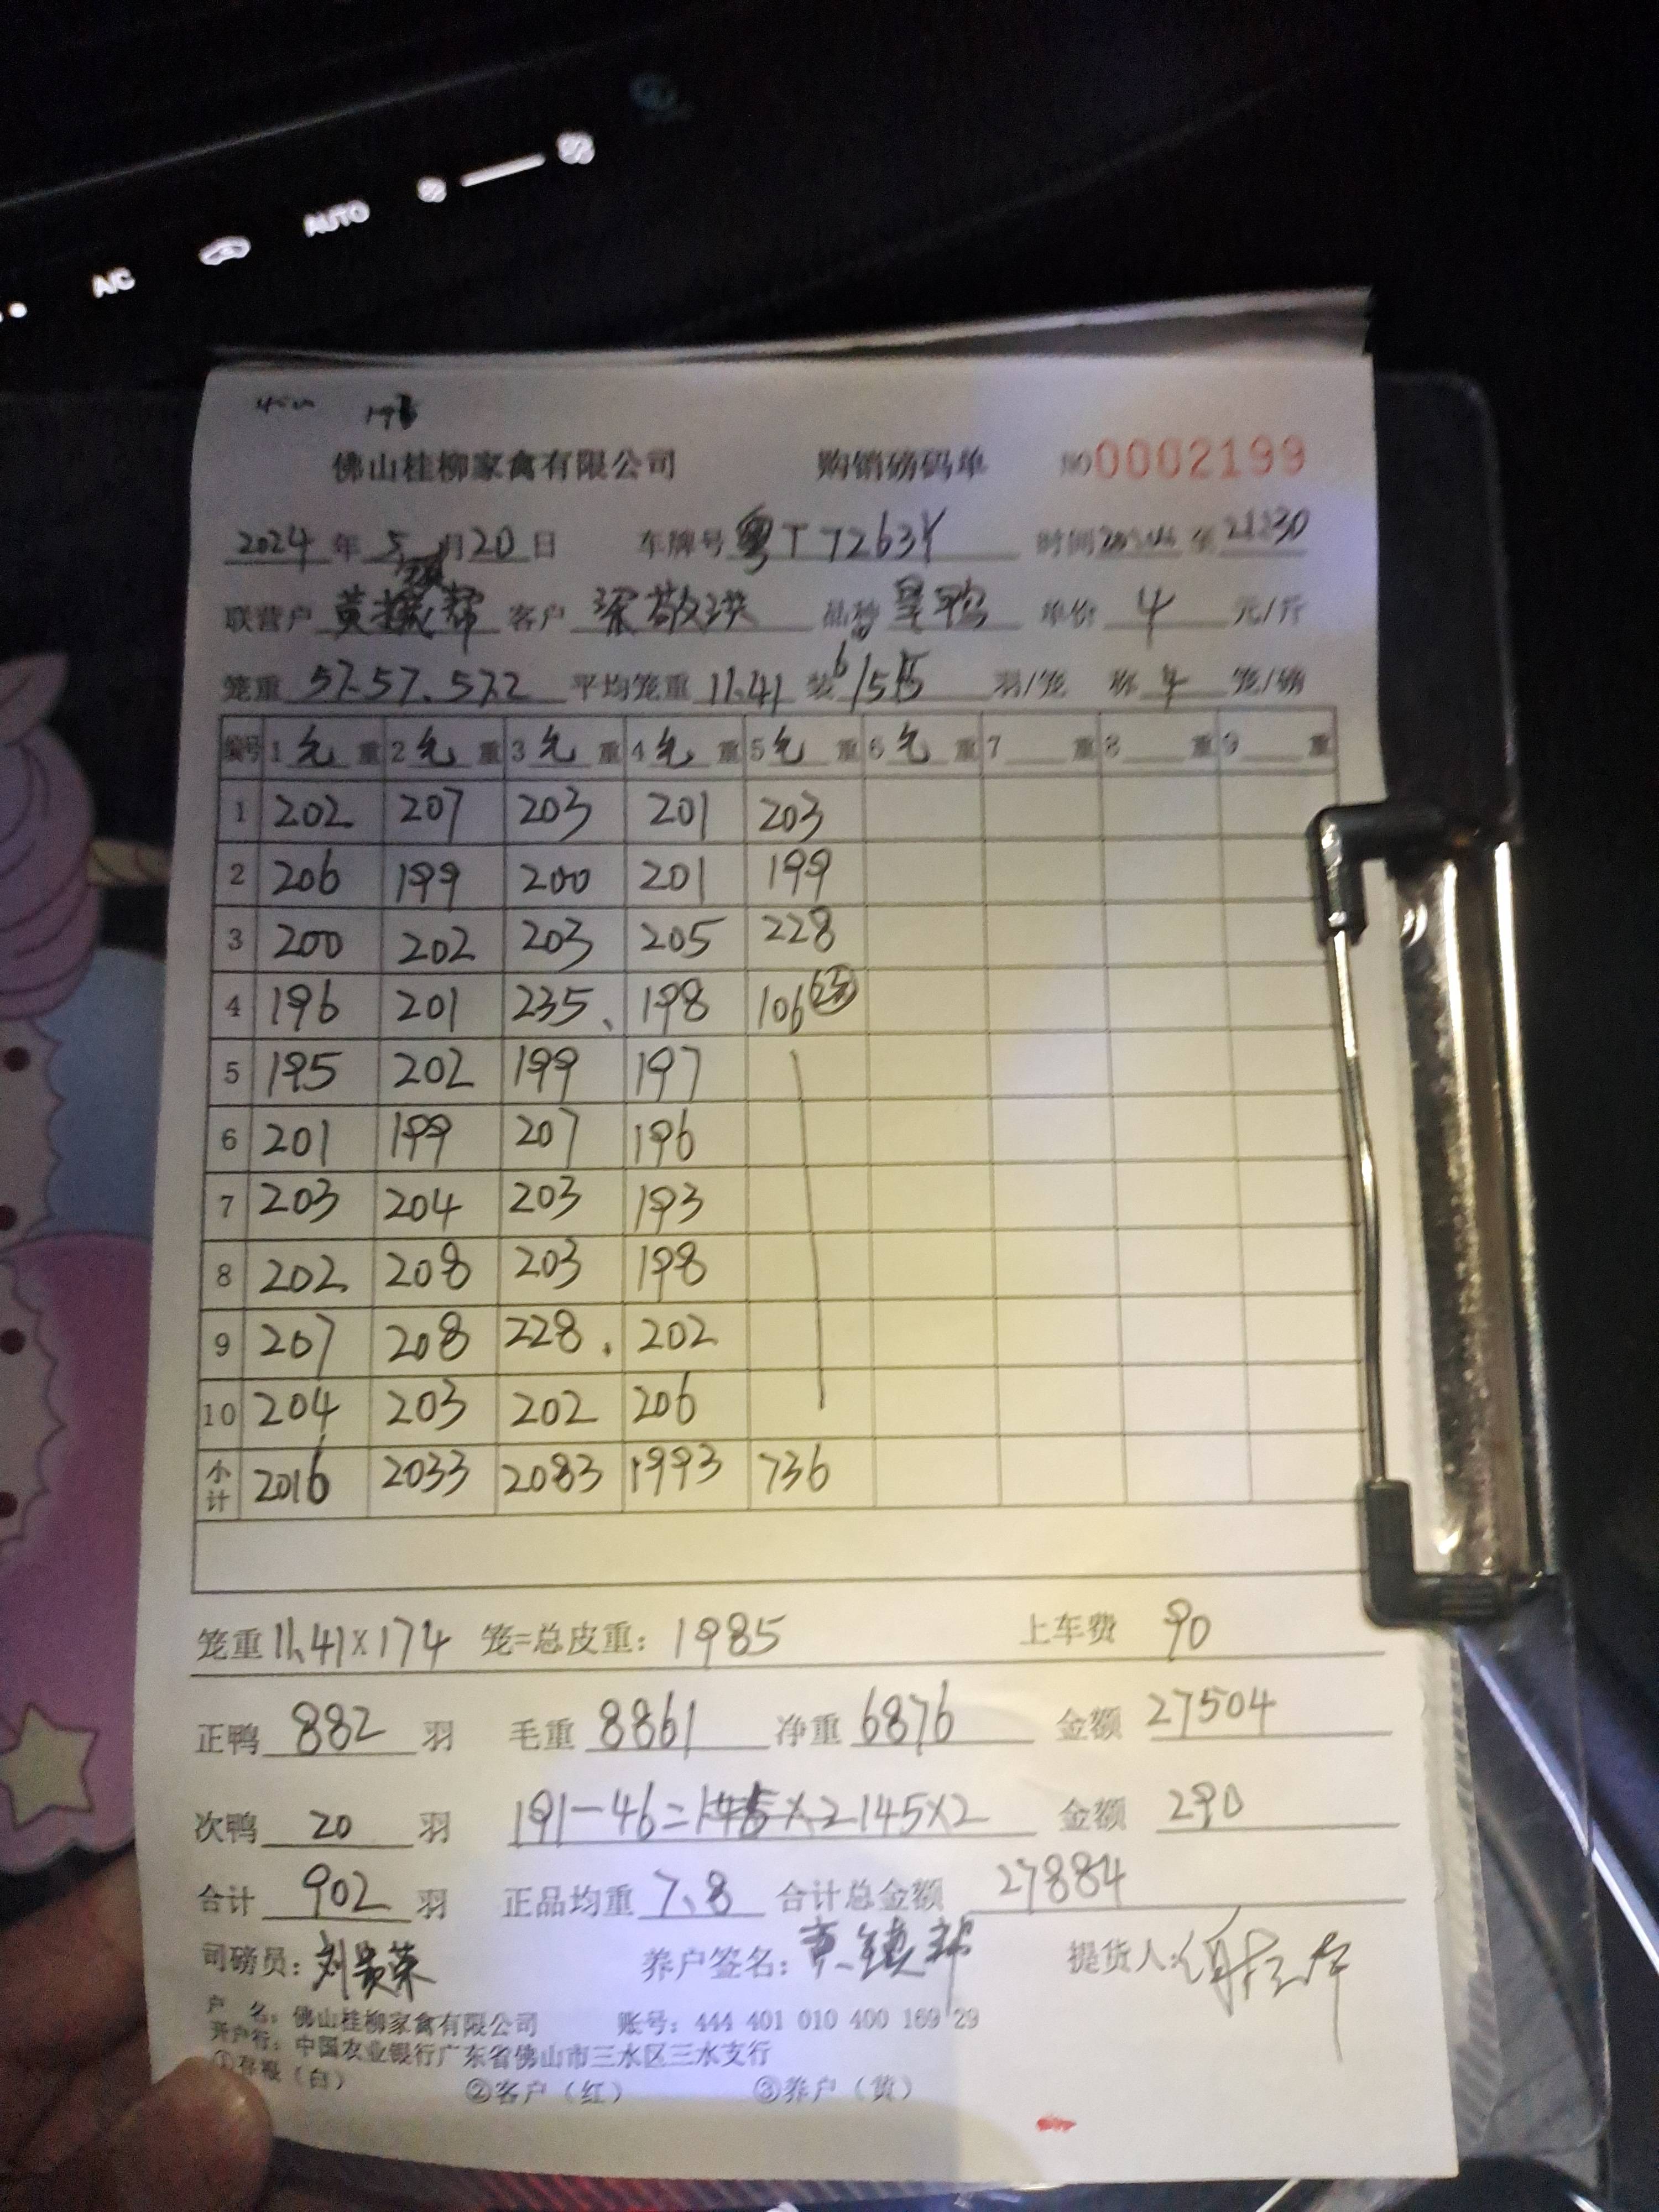 AUTO
A/C
佛山桂柳家禽有限公司 购销磅码单 NO0002199
2024年5月20日 车牌号粤T7263Y 时间 至21:30
联营户 黄 辉 客户 梁敬洪 品种 单价4元/斤
笼重57.57.57.2 平均笼重11.41 装6/5 羽/笼 称4笼/磅
编号 1毛重 2毛重 3毛重 4毛重 5毛重 6毛重 7重 8重 9重
1 202 207 203 201 203
2 206 199 200 201 199
3 200 202 203 205 228
4 196 201 235 198 106
5 195 202 199 197
6 201 199 207 196
7 203 204 203 193
8 202 208 203 198
9 207 208 228 202
10 204 203 202 206
小计 2016 2033 2083 1993 736
笼重11.41×174 笼=总皮重：1985 上车费 90
正鸭882羽 毛重8861 净重6876 金额27504
次鸭20羽 191-46= ×2 145×2 金额290
合计902羽 正品均重7.8 合计总金额27884
司磅员：刘贵荣 养户签名：黄镜辉 提货人：
户 名：佛山桂柳家禽有限公司 账号：444 401 010 400 169 29
开户行：中国农业银行广东省佛山市三水区三水支行
①存根（白） ②客户（红） ③养户（黄）